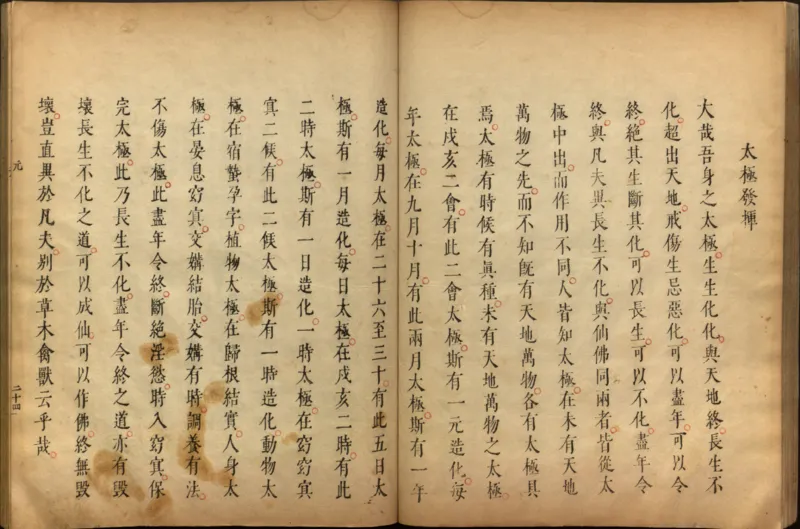 太極發揮
大哉吾身之太極生生化化與天地終長生不
化超出天地戒傷生忌惡化可以盡年可以令
終絶其生斷其化可以長生可以不化盡年令
終與凡夫異長生不化與仙佛同兩者皆從太
極中出而作用不同人皆知太極在未有天地
萬物之先而不知旣有天地萬物各有太極具
焉太極有時候有眞種未有天地萬物之太極
在戌亥二會有此二會太極斯有一元造化每
年太極在九月十月有此兩月太極斯有一年
造化每月太極在二十六至三十有此五日太
極斯有一月造化每日太極在戌亥二時有此
二時太極斯有一日造化一時太極在窈窈冥
冥二候有此二候太極斯有一時造化動物太
極在宿蟄孕字植物太極在歸根結實人身太
極在晏息窈冥交媾結胎交媾有時調養有法
不傷太極此盡年令終斷絕淫慾時入窈冥保
完太極此乃長生不化盡年令終之道亦有毀
壞長生不化之道可以成仙可以作佛終無毀
壞豈直異於凡夫別於草木禽獸云乎哉
元
二十四